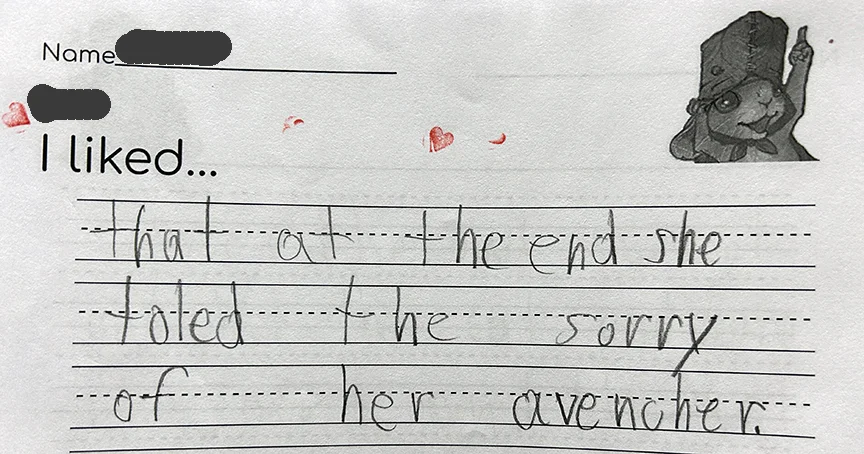 Name
I liked...
that at the end she
toled the sorry
of her avencher.